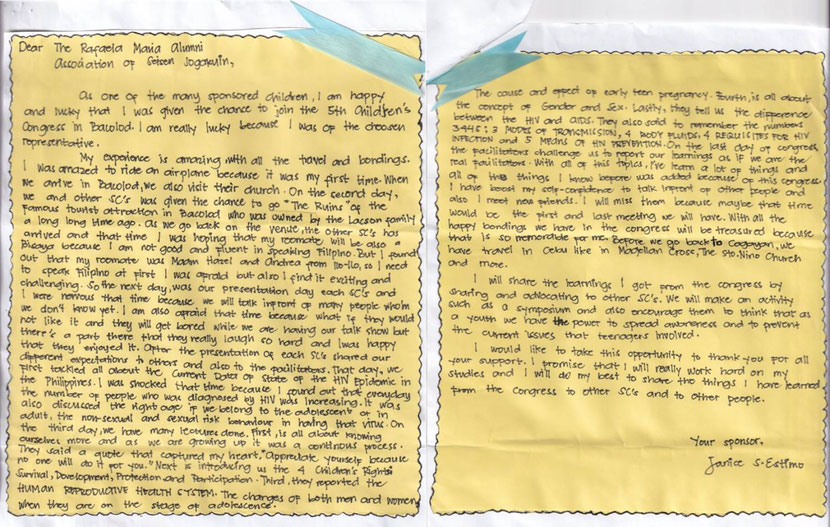 Dear The Rafaela Maria Alumni
Association of Seisen Jogakuin,
As one of the many sponsored children, I am happy
and lucky that I was given the chance to join the 5th Children's
Congress in Bacolod. I am really lucky because I was of the choosen
representative.
My experience is amazing with all the travel and bondings.
I was amazed to ride an airplane because it was my first time. When
we arrive in Bacolod, we also visit their church. On the second day,
we and other SC's was given the chance to go "The Ruins" of the
famous tourist attraction in Bacolod who was owned by the Lacson family
a long long time ago. As we go back on the venue, the other SC's has
arrived and that time I was hoping that my roomate will be also a
Bisaya because I am not good and fluent in speaking Filipino. But I found
out that my roomate was Madm Hazel and Andrea from Ilo-Ilo, so I need
to speak Filipino at first I was afraid but also I find it exciting and
challenging. So the next day, was our presentation day each SC's and
I were nervous that time because we will talk infront of many people whom
we don't know yet. I am also afraid that time because what if they would
not like it and they will get bored while we are having our talk show but
there's a part there that they really laugh so hard and I was happy
that they enjoyed it. After the presentation of each SC's shared our
different expectations to others and also to the facilitators. That day, we
first tackled all about the Current Data of State of the HIV Epidemic in
the Philippines. I was shocked that time because I found out that everyday
the number of people who was diagnosed by HIV was increasing. It was
also discussed the right age if we belong to the adolescent or in
adult, the non-sexual and sexual risk behaviour in having that virus. On
the third day, we have many lectures done. First, is all about knowing
ourselves more and as we are growing up it was a continous process.
They said a quote that captured my heart, "Appreciate yourself because
no one will do it for you." Next is introducing us the 4 Children's Rights
Survival, Development, Protection and Participation. Third, they reported the
HUMAN REPRODUCTIVE HEALTH SYSTEM. The changes of both men and women
when they are on the stage of adolescence.
The cause and effect of early teen pregnancy. Fourth, is all about
the concept of Gender and Sex. Lastly, they tell us the difference
between the HIV and AIDS. They also said to remember the numbers
3445: 3 MODES OF TRANSMISSION, 4 BODY FLUIDS, 4 REQUISITES FOR HIV
INFECTION and 5 MEANS OF HIV PREVENTION. On the last day of congress,
the facilitators challenge us to report our learnings as if we are the
real facilitators. With all of this topics, I've learn a lot of things and
all of the things I know before was added because of this congress.
I have boost my self-confidence to talk infront of other people and
also I meet new friends. I will miss them because maybe that time
would be the first and last meeting we will have. With all the
happy bondings we have in the congress will be treasured because
that is so memorable for me. Before we go back to Cagayan, we
have travel in Cebu like in Magellan Cross, The Sto. Nino Church
and more.
I will share the learnings I got from the congress by
sharing and advocating to other SC's. We will make an activity
such as a symposium and also encourage them to think that as
a youth we have the power to spread awareness and to prevent
the current issues that teenagers involved.
I would like to take this opportunity to thank you for all
your support. I promise that I will really work hard on my
studies and I will do my best to share the things I have learned
from the Congress to other SC's and to other people.
Your sponsor,
Janice S. Estimo